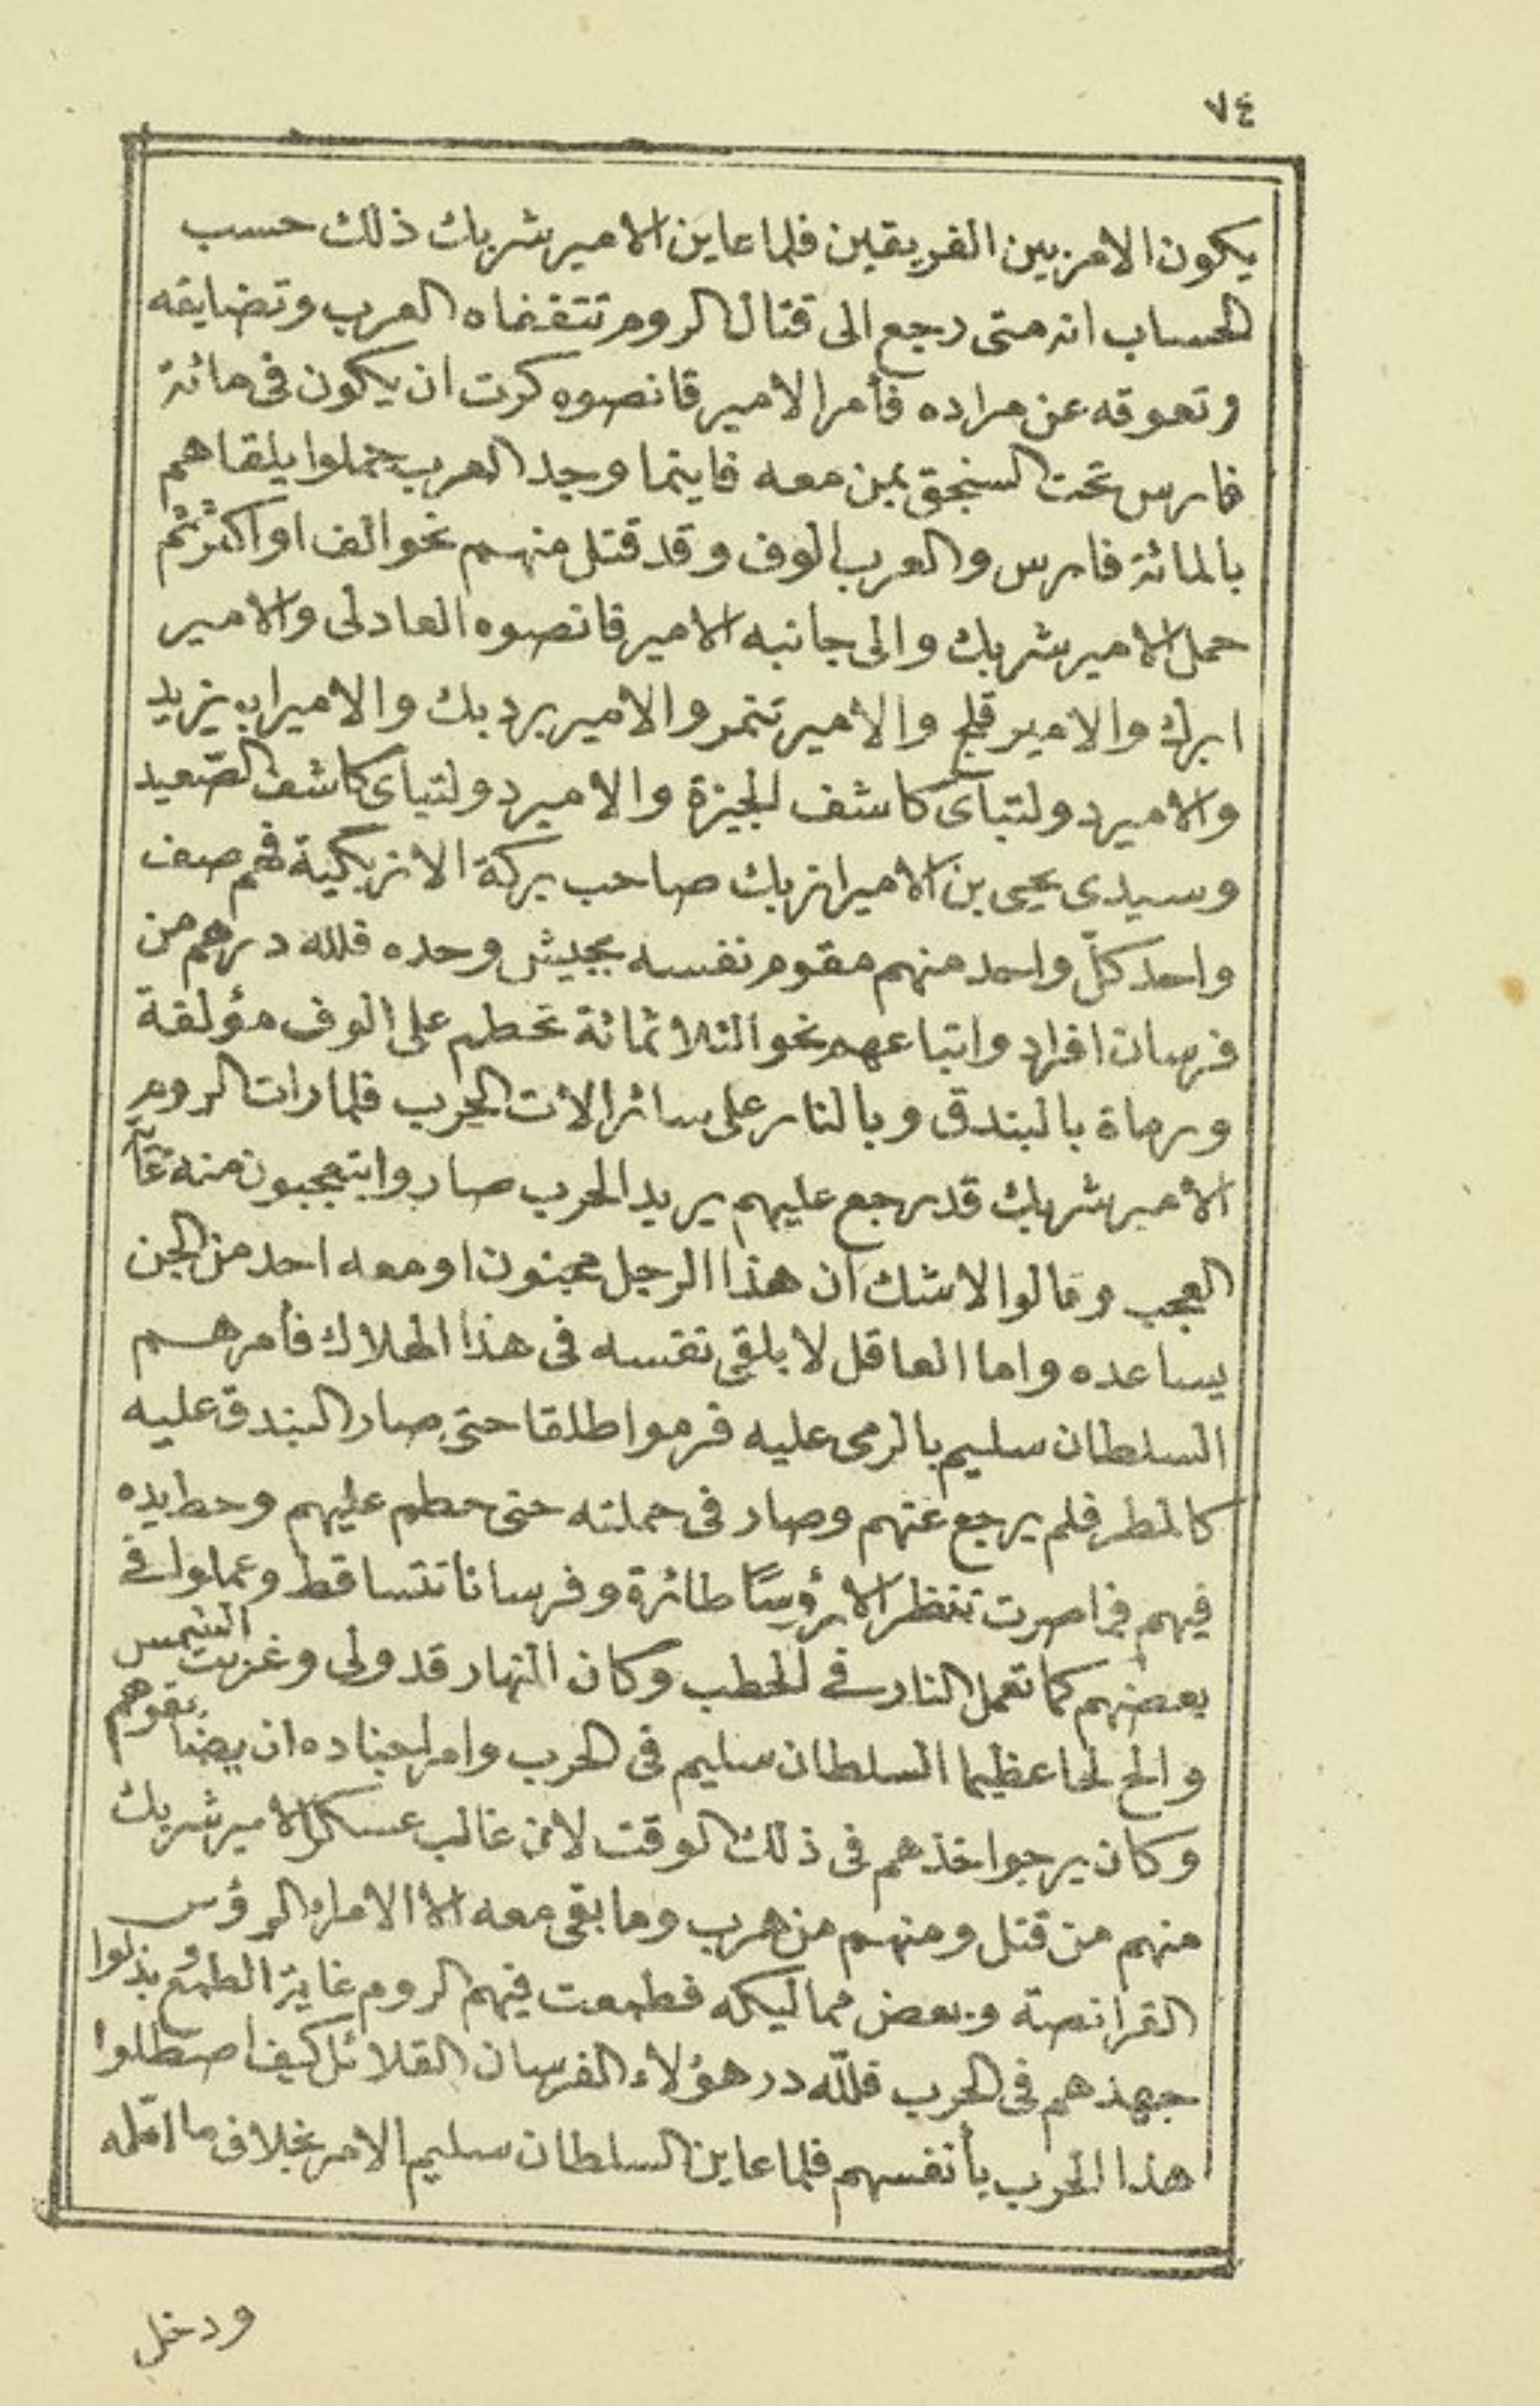 ٧٤
يكون الامر بين الفريقين فلما عاين الامير شربك ذلك حسب
الحساب انه متى رجع الى قتال الروم تتقفاه العرب وتضايقه
وتعوقه عن مراده فأمر الامير قانصوه كرت ان يكون في مائة
فارس تحت السنجق بمن معه فاينما وجد العرب حملوا يلقاهم
بالمائة فارس والعرب الوف وقد قتل منهم نحو الف او اكثر ثم
حمل الامير شربك والى جانبه الامير قانصوه العادلى والامير
ابرك والامير قلج والامير تنمر والامير برد بك والامير اب يزيد
والامير دولتباى كاشف الجيزة والامير دولتباى كاشف الصّعيد
وسيدى يحيى بن الامير ازبك صاحب بركة الازبكية فهم صف
واحد كلّ واحد منهم مقوم نفسه بجيش وحده فلله درهم من
فرسان افراد واتباعهم نحو الثلاثمائة تحطم على الوف مؤلفة
ورماة بالبندق وبالنار على سائر الات الحرب فلما رات الروم
الامير شربك قد رجع عليهم يريد الحرب صاروا يتعجبون منه غاية
العجب وقالوا لا شك ان هذا الرجل مجنون او معه احد من الجن
يساعده واما العاقل لا يلقى نفسه فى هذا الهلاك فأمرهم
السلطان سليم بالرمى عليه فرموا طلقا حتى صار البندق عليه
كالمطر فلم يرجع عنهم وصار فى حملته حتى حطم عليهم وحط يده
فيهم فما صرت تنظر الا رؤسًا طائرة وفرسانا تتساقط وعملوا في
بعضهم كما تعمل النار في الحطب وكان النهار قد ولى وغربت الشمس
والح لحا عظيما السلطان سليم فى الحرب وامر اجناده ان يضايقوهم
وكان يرجوا اخذهم فى ذلك الوقت لان غالب عسكر الامير شربك
منهم من قتل ومنهم من هرب وما بقى معه الا الامراء الرؤس
القرانصة وبعض مماليكه فطمعت فيهم الروم غاية الطمع وبذلوا
جهدهم فى الحرب فللّه در هؤلاء الفرسان القلائل كيف اصطلوا
هذا الحرب بأنفسهم فلما عاين السلطان سليم الامر بخلاف ما امّله
ودخل